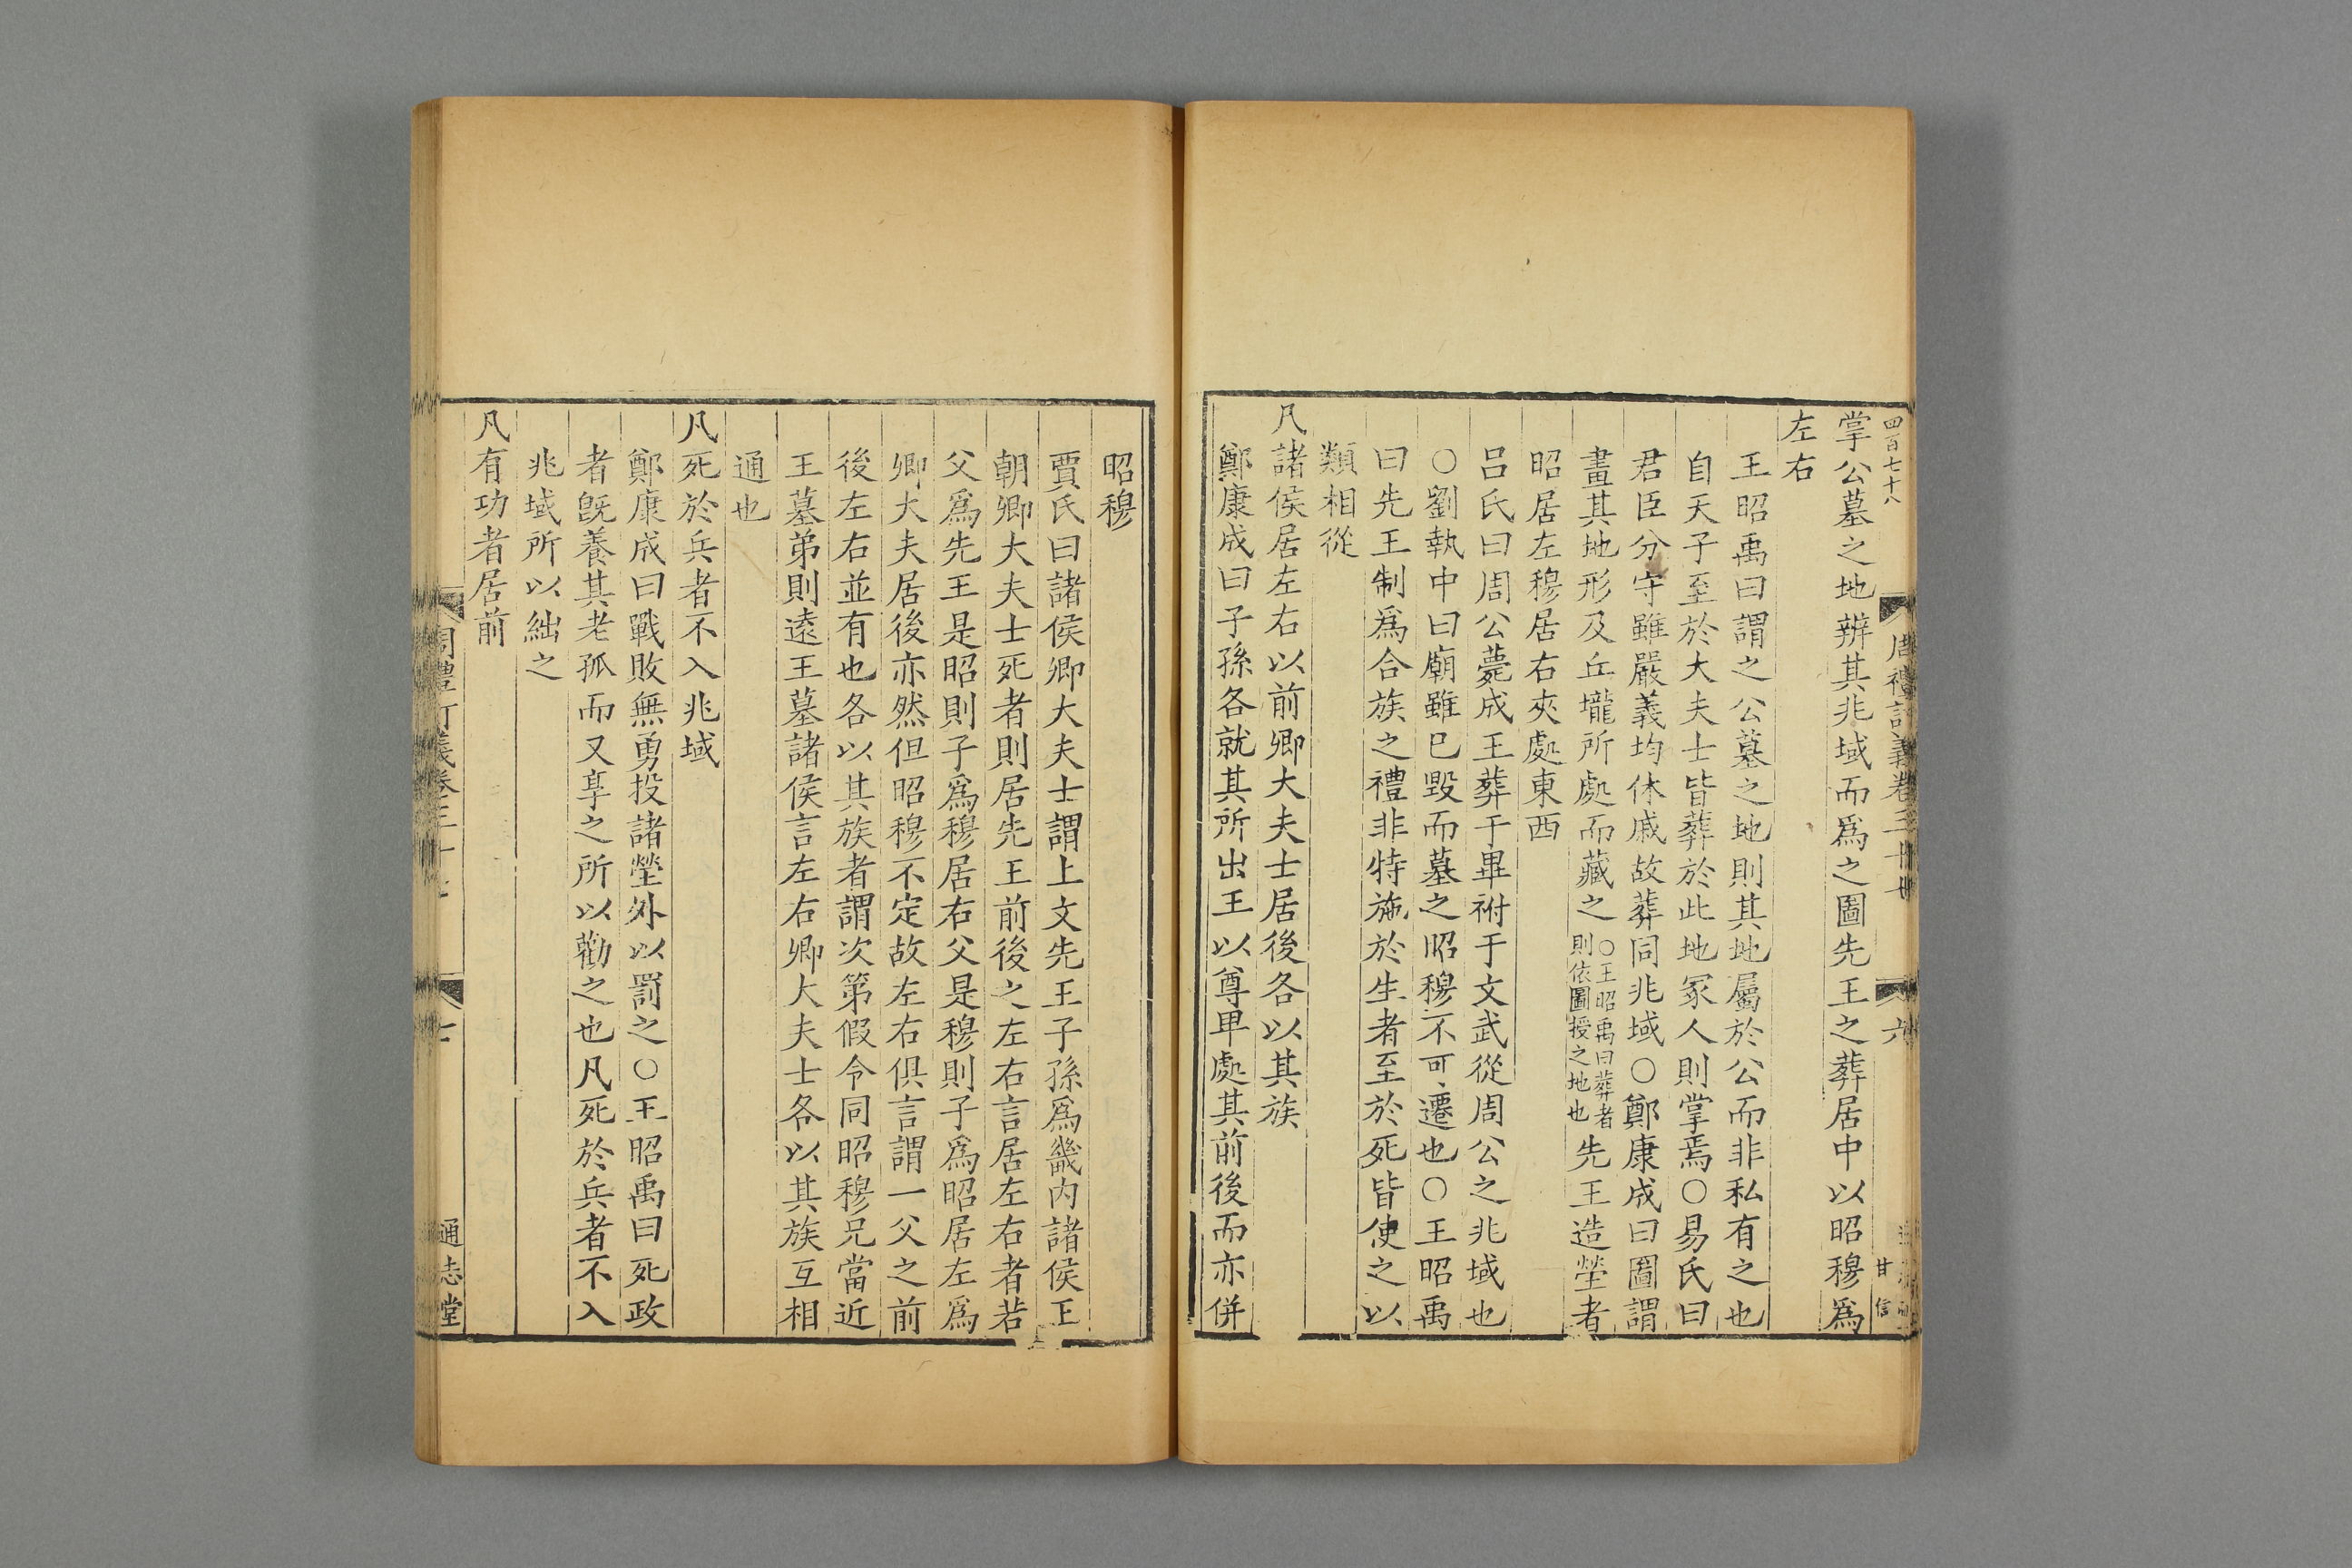 四百七十八
掌公墓之地辨其兆域而爲之圖先王之葬居中以昭穆爲
左右
王昭禹曰謂之公墓之地則其地屬於公而非私有之也
自天子至於大夫士皆葬於此地冢人則掌焉○易氏曰
君臣分守雖嚴義均休戚故葬同兆域○鄭康成曰圖謂
畫其地形及丘壠所處而藏之○王昭禹曰葬者則依圖授之地也先王造塋者
昭居左穆居右夾處東西
呂氏曰周公薨成王葬于畢祔于文武從周公之兆域也
○劉執中曰廟雖巳毀而墓之昭穆不可遷也○王昭禹
曰先王制爲合族之禮非特施於生者至於死皆使之以
類相從
凡諸侯居左右以前卿大夫士居後各以其族
鄭康成曰子孫各就其所出王以尊𤰞處其前後而亦併
周禮訂義卷三十
六
甘 信
昭穆
賈氏曰諸侯卿大夫士謂上文先王子孫爲畿内諸侯王
朝卿大夫士死者則居先王前後之左右言居左右者若
父爲先王是昭則子爲穆居右父是穆則子爲昭居左爲
卿大夫居後亦然但昭穆不定故左右俱言謂一父之前
後左右並有也各以其族者謂次第假令同昭穆兄當近
王墓弟則遠王墓諸侯言左右卿大夫士各以其族互相
通也
凡死於兵者不入兆域
鄭康成曰戰敗無勇投諸塋外以罰之○王昭禹曰死政
者旣養其老孤而又享之所以勸之也凡死於兵者不入
兆域所以絀之
凡有功者居前
周禮訂義卷三十
七
通志堂